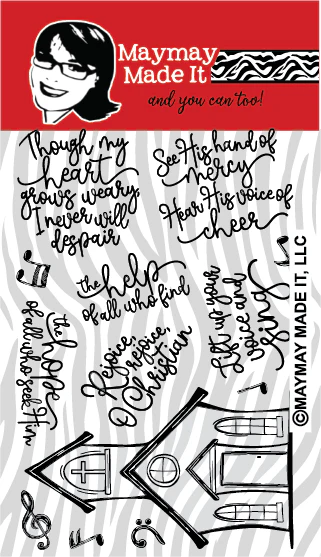 Maymay
Made It
and you can too!
Though my
heart
grows weary,
I never will
despair
See His hand of
mercy
Hear His voice of
cheer
the help
of all who find
the hope
of all who seek Him
Rejoice,
rejoice,
O Christian
Lift up your
voice and
sing
©MAYMAY MADE IT, LLC